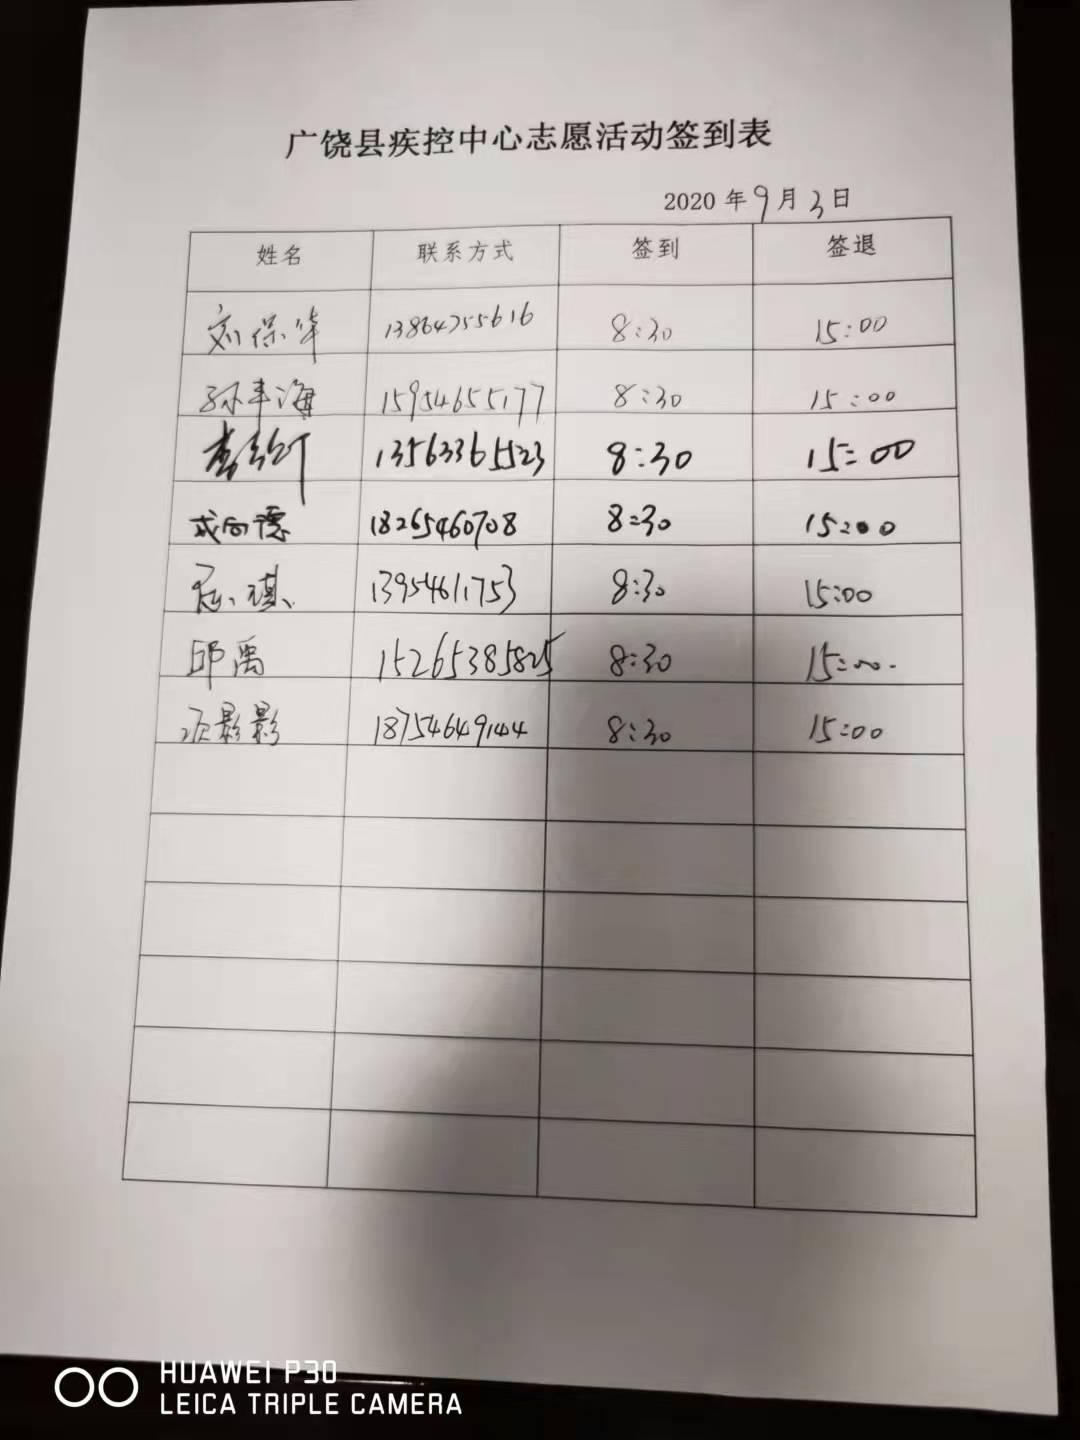 广饶县疾控中心志愿活动签到表
2020年9月3日
姓名 联系方式 签到 签退
刘保华 13864755616 8:30 15:00
孙丰海 15954655177 8:30 15:00
13563365523 8:30 15:00
成向德 18265460708 8:30 15:00
琪 13954611753 8:30 15:00
邱禹 15265385825 8:30 15:00
影影 18754649144 8:30 15:00
HUAWEI P30
LEICA TRIPLE CAMERA